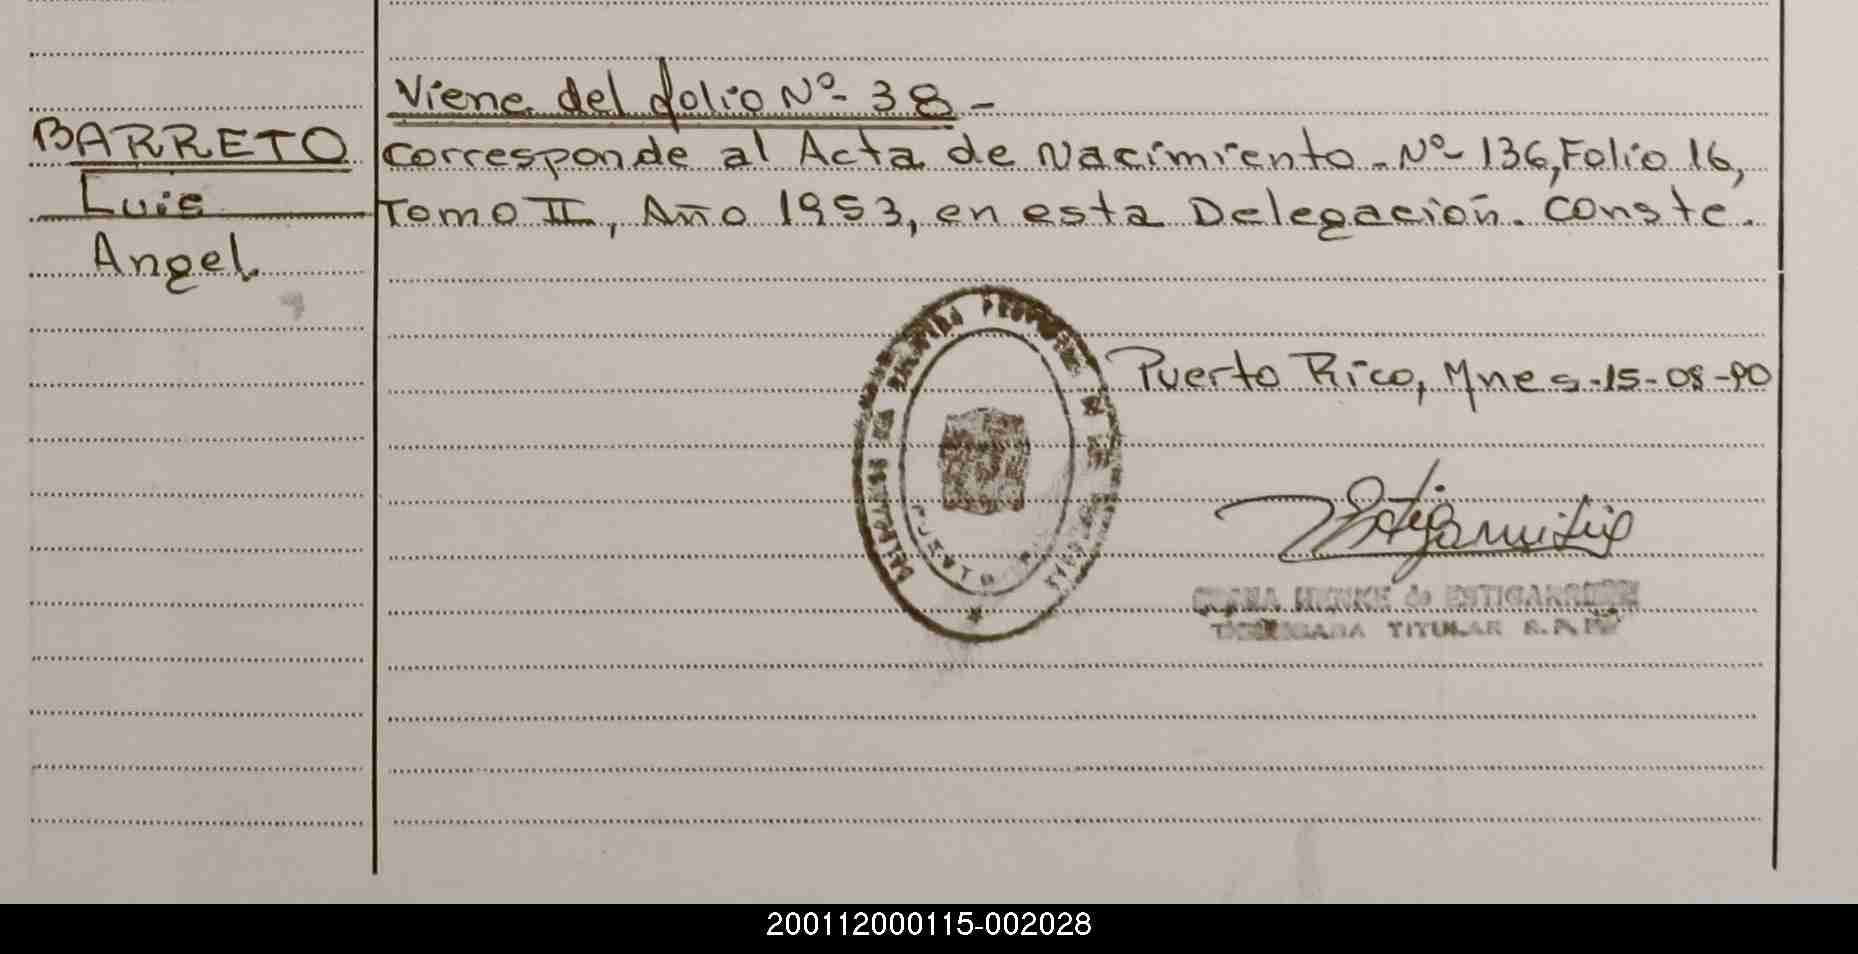 Viene del folio Nº- 38 -
BARRETO
Luis
Angel.
Corresponde al Acta de Nacimiento - Nº- 136, Folio 16,
Tomo II, Año 1953, en esta Delegación. Conste.
Puerto Rico, Mnes.-15-08-90
de ESTIGARRIBIA
TITULAR
200112000115-002028